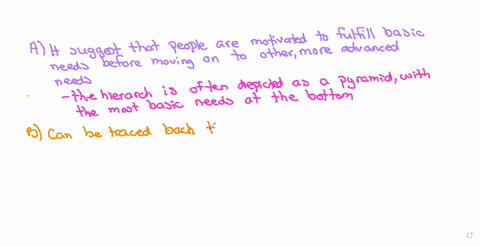 A) It suggest that people are motivated to fulfill basic
needs before moving on to other, more advanced
needs
- the hierarch is often depicted as a pyramid, with
the most basic needs at the bottom
B) Can be traced back t